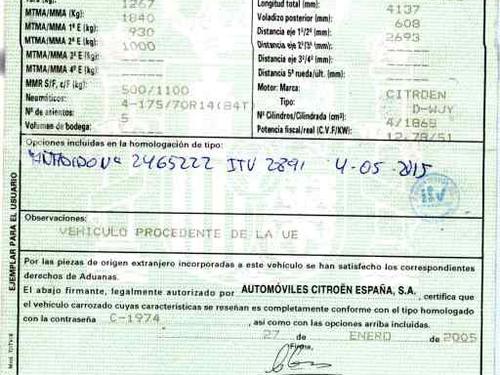 1267
MTMA/MMA (Kg): 1840
MTMA/MMA 1º E (kg): 930
MTMA/MMA 2º E (kg): 1000
MTMA/MMA 3º E (kg): -----
MTMA/MMA 4º E (kg): -----
MMR S/F, c/F (kg): 500/1100
Neumáticos: 4-175/70R14(84T)
Nº de asientos: 5
Volumen de bodega: -----
Longitud total (mm): 4137
Voladizo posterior (mm): 608
Distancia eje 1º/2º (mm): 2693
Distancia eje 2º/3º (mm): -----
Distancia eje 3º/4º (mm): -----
Distancia 5ª rueda/últ. (mm): -----
Motor: Marca: CITROEN
Tipo: D-WJY
Nº Cilindros/Cilindrada (cm³): 4/1868
Potencia fiscal/real (C.V.F/KW): 12.78/51
Opciones incluidas en la homologación de tipo:
2465222 ITV 2891 4-05-2015
ITV
Observaciones:
VEHICULO PROCEDENTE DE LA UE
Por las piezas de origen extranjero incorporadas a este vehículo se han satisfecho los correspondientes
derechos de Aduanas.
El abajo firmante, legalmente autorizado por AUTOMÓVILES CITROËN ESPAÑA, S.A. , certifica que
el vehículo carrozado cuyas características se reseñan es completamente conforme con el tipo homologado
con la contraseña C-1974 , así como con las opciones arriba incluidas.
27 de ENERO de 2005
Firma,
EJEMPLAR PARA EL USUARIO